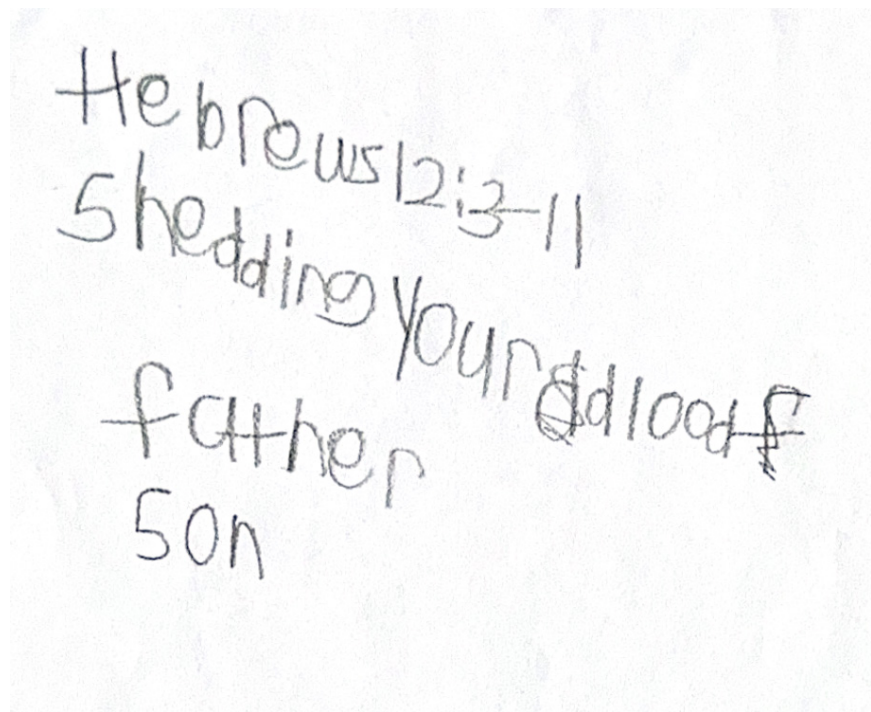 Hebrews 12:3-11
Shedding your dlood
father
son